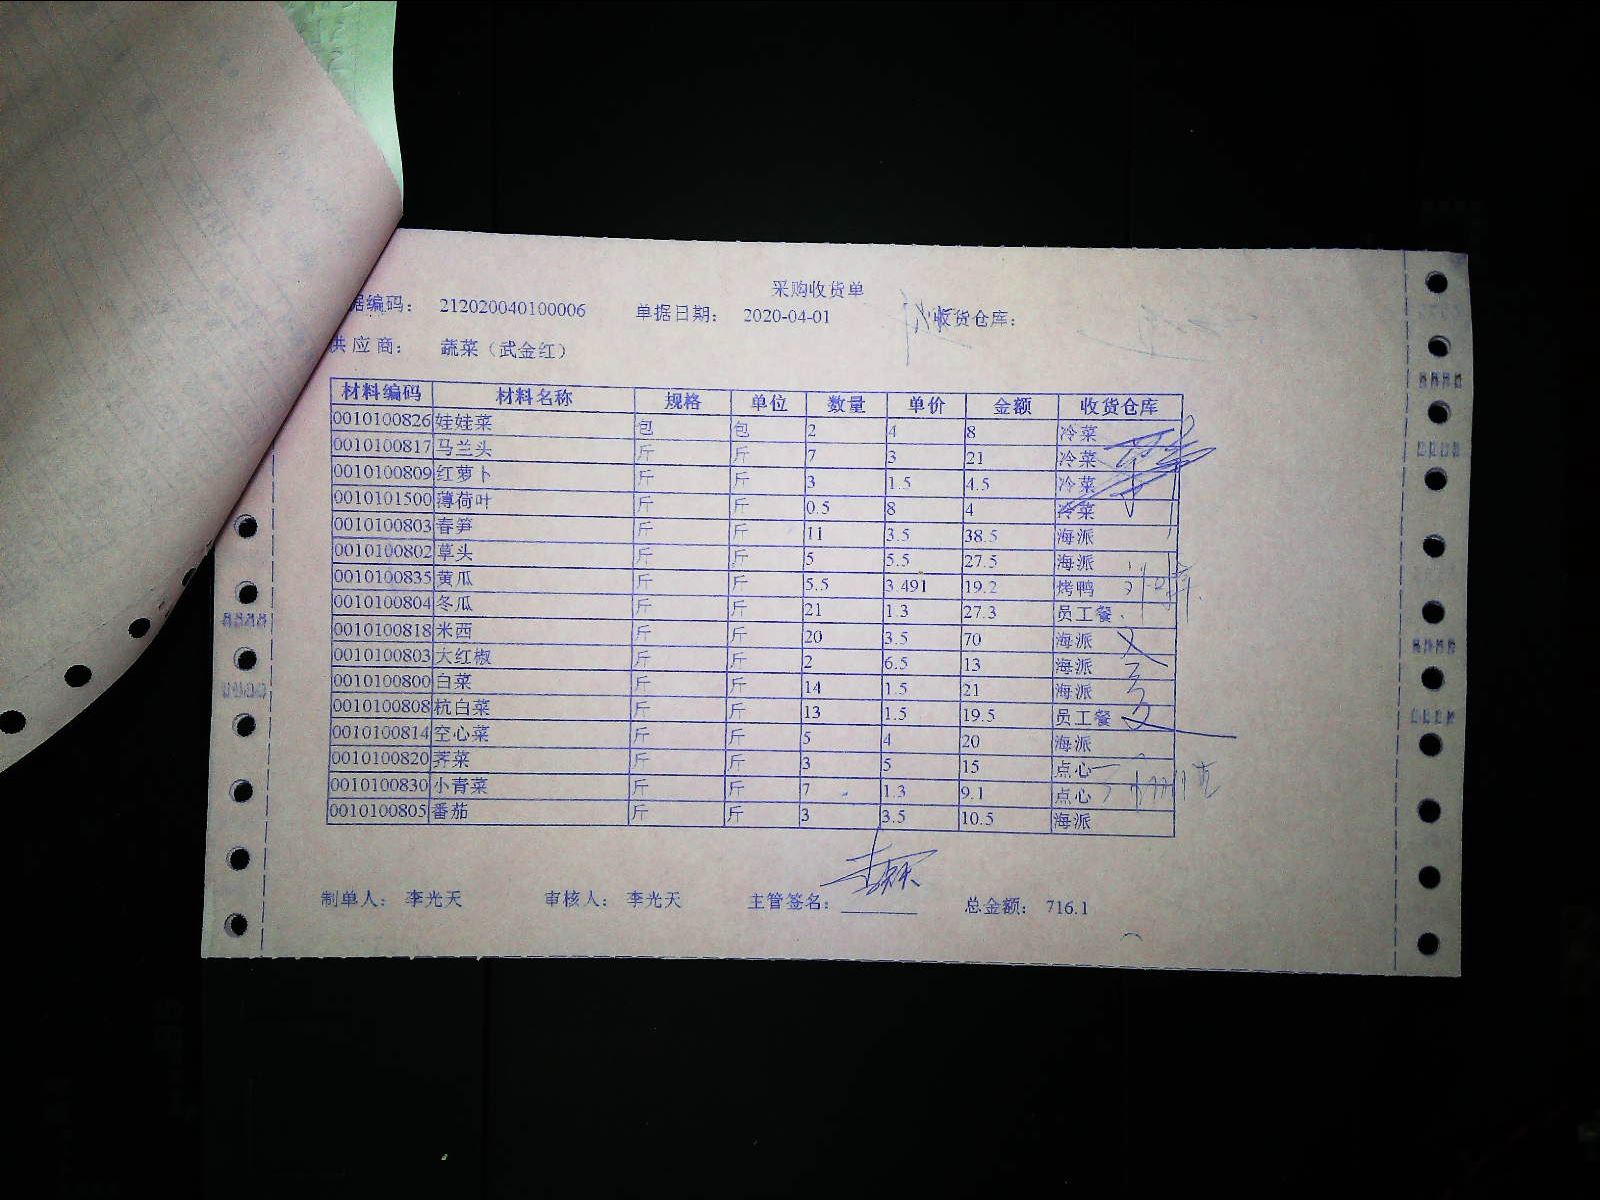 采购收货单
据编码: 212020040100006 单据日期: 2020-04-01 收货仓库:
供应商: 蔬菜（武金红）
材料编码 材料名称 规格 单位 数量 单价 金额 收货仓库
0010100826 娃娃菜 包 包 2 4 8 冷菜
0010100817 马兰头 斤 斤 7 3 21 冷菜
0010100809 红萝卜 斤 斤 3 1.5 4.5 冷菜
0010101500 薄荷叶 斤 斤 0.5 8 4 冷菜
0010100803 春笋 斤 斤 11 3.5 38.5 海派
0010100802 草头 斤 斤 5 5.5 27.5 海派
0010100835 黄瓜 斤 斤 5.5 3.491 19.2 烤鸭
0010100804 冬瓜 斤 斤 21 1.3 27.3 员工餐
0010100818 米西 斤 斤 20 3.5 70 海派
0010100803 大红椒 斤 斤 2 6.5 13 海派
0010100800 白菜 斤 斤 14 1.5 21 海派
0010100808 杭白菜 斤 斤 13 1.5 19.5 员工餐
0010100814 空心菜 斤 斤 5 4 20 海派
0010100820 荠菜 斤 斤 3 5 15 点心
0010100830 小青菜 斤 斤 7 1.3 9.1 点心
0010100805 番茄 斤 斤 3 3.5 10.5 海派
制单人: 李光天 审核人: 李光天 主管签名: 总金额: 716.1